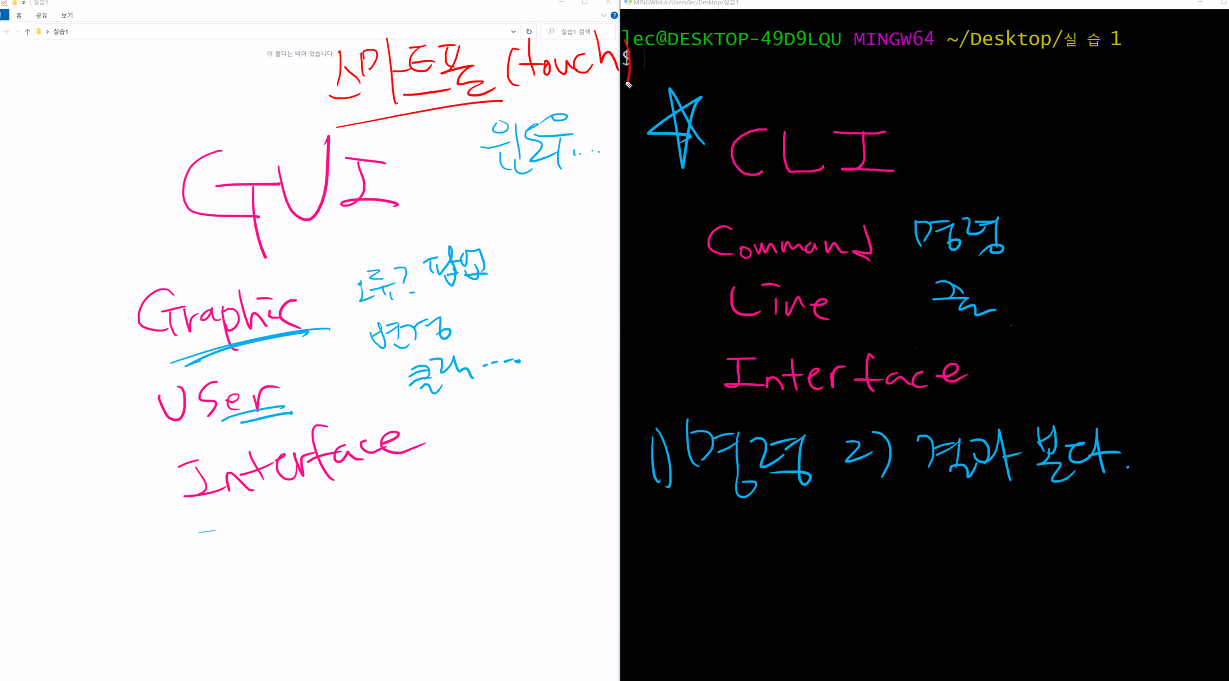 실습1
홈 공유 보기
실습1
실습1 검색
이 폴더는 비어 있습니다.
스마트폰 (touch)
윈도우...
GUI
Graphic
User
Interface
변경
클릭....
MINGW64:/c/Users/lec/Desktop/실습1
lec@DESKTOP-49D9LQU MINGW64 ~/Desktop/실습1
$
CLI
Command 명령
Line 줄
Interface
1) 명령 2) 결과 본다.